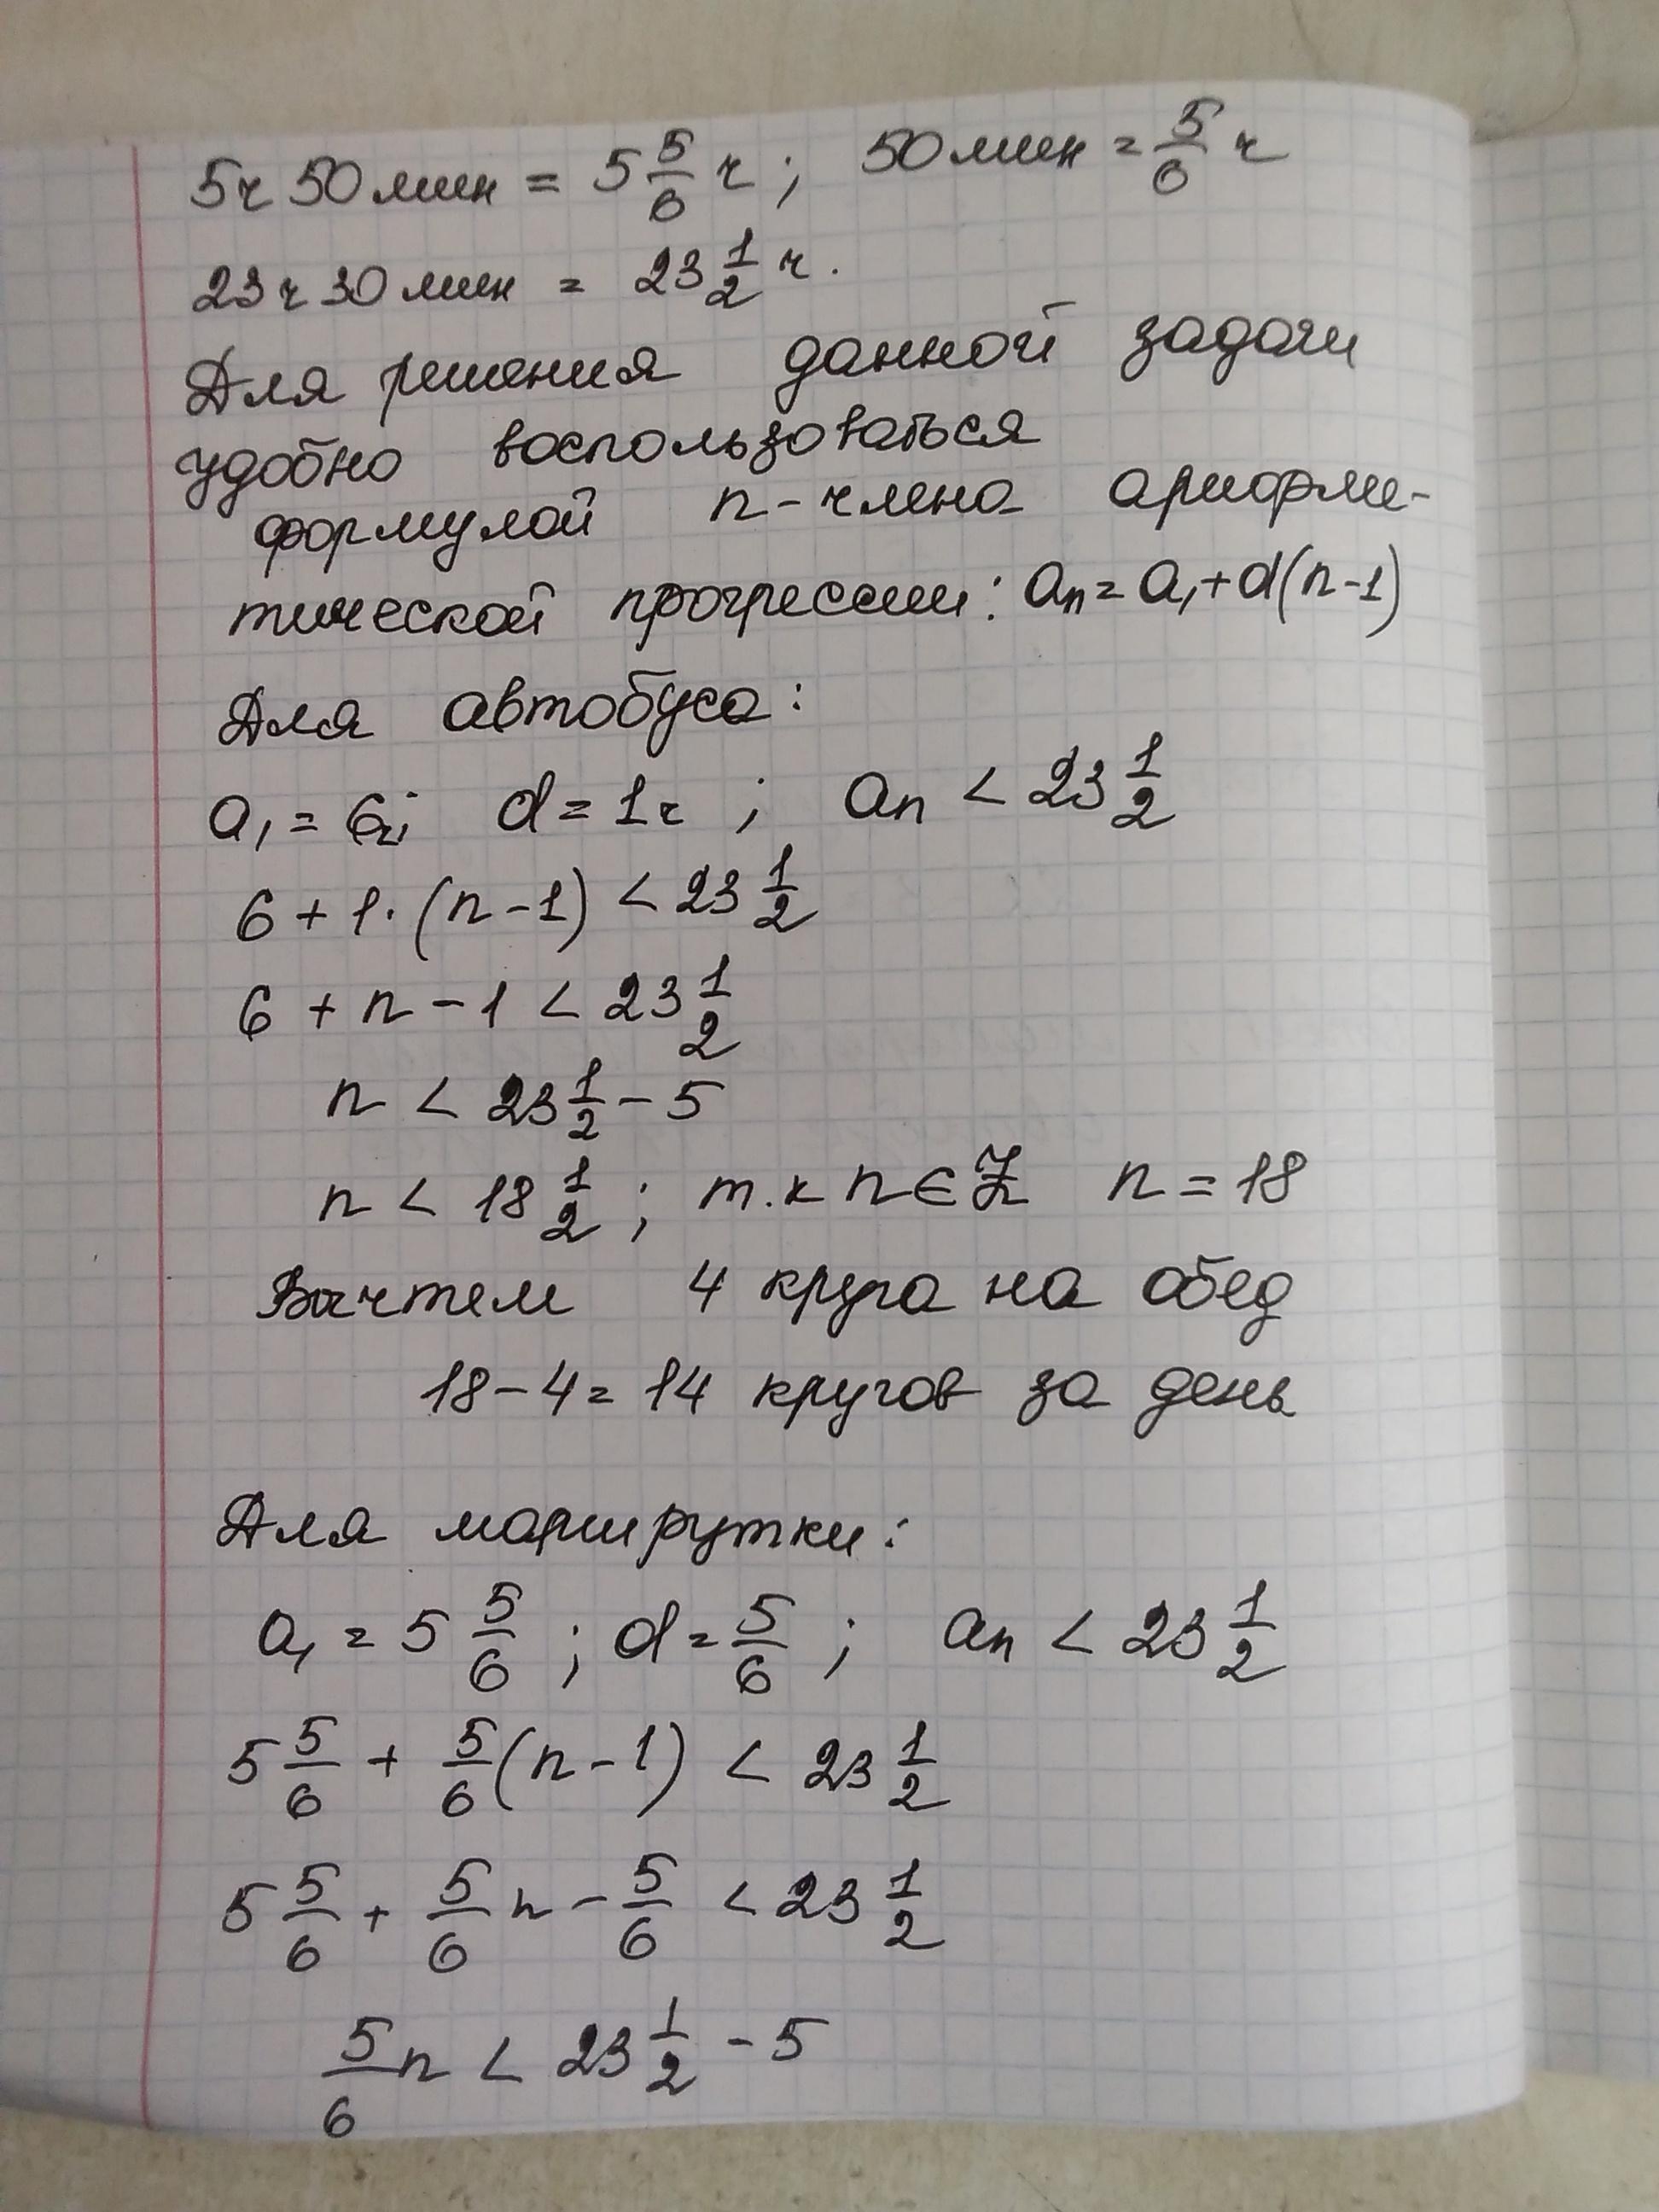 5ч 50 мин = 5 5/6 ч ; 50 мин = 5/6 ч
23 ч 30 мин = 23 1/2 ч.
Для решения данной задачи
удобно воспользоваться
формулой n-члена арифме-
тической прогрессии: aₙ = a₁ + d(n-1)
Для автобуса:
a₁ = 6ч; d = 1ч ; aₙ < 23 1/2
6 + 1·(n-1) < 23 1/2
6 + n - 1 < 23 1/2
n < 23 1/2 - 5
n < 18 1/2 ; т.к n ∈ Z n = 18
Вычтем 4 круга на обед
18 - 4 = 14 кругов за день
Для маршрутки:
a₁ = 5 5/6 ; d = 5/6 ; aₙ < 23 1/2
5 5/6 + 5/6(n-1) < 23 1/2
5 5/6 + 5/6 n - 5/6 < 23 1/2
5/6 n < 23 1/2 - 5